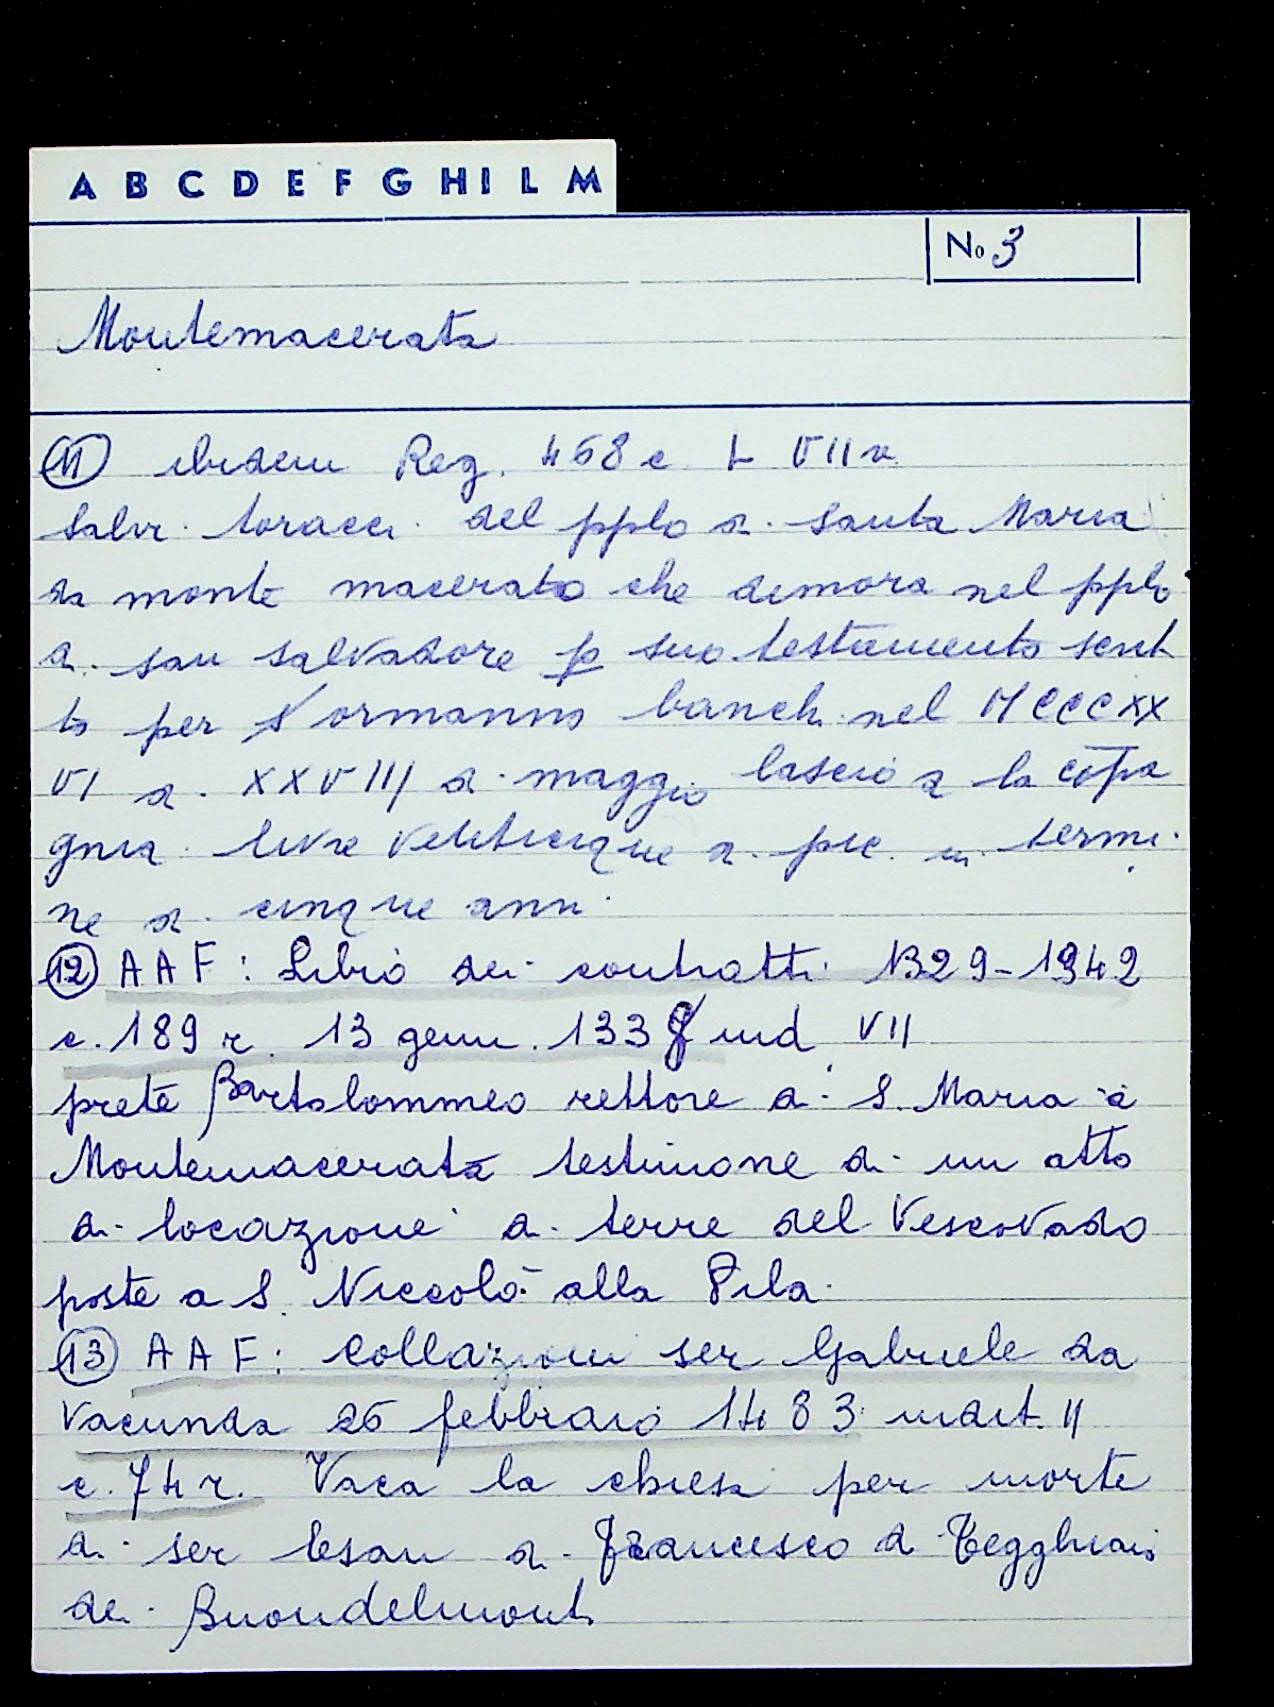 A B C D E F G H I L M
No 3
Montemacerata
11 ibidem Reg. 468 c. L VII v
Salvi toracci del pplo di santa Maria
da monte macerato che dimora nel pplo
di san salvadore p suo testamento scrit
to per Normanno banchi nel MCCCXX
VI a XXVIII di maggio lascio a la copa
gnia livre venticique di pic. in termi
ne di cinque anni
12 AAF: Libro dei contratti B29-1942
c. 189 r 13 genn. 1338 ind VII
prete Bartolommeo rettore di S. Maria a
Montemacerata testimone di un atto
di locazione di terre del Vescovado
poste a S. Niccolò alla Pila
13 AAF: Collazioni ser Gabriele da
Vacunda 26 febbraio 1483 indit. II
c. 74 r. Vaca la chiesa per morte
di ser di Francesco di Tegghiaio
dei Buondelmonti